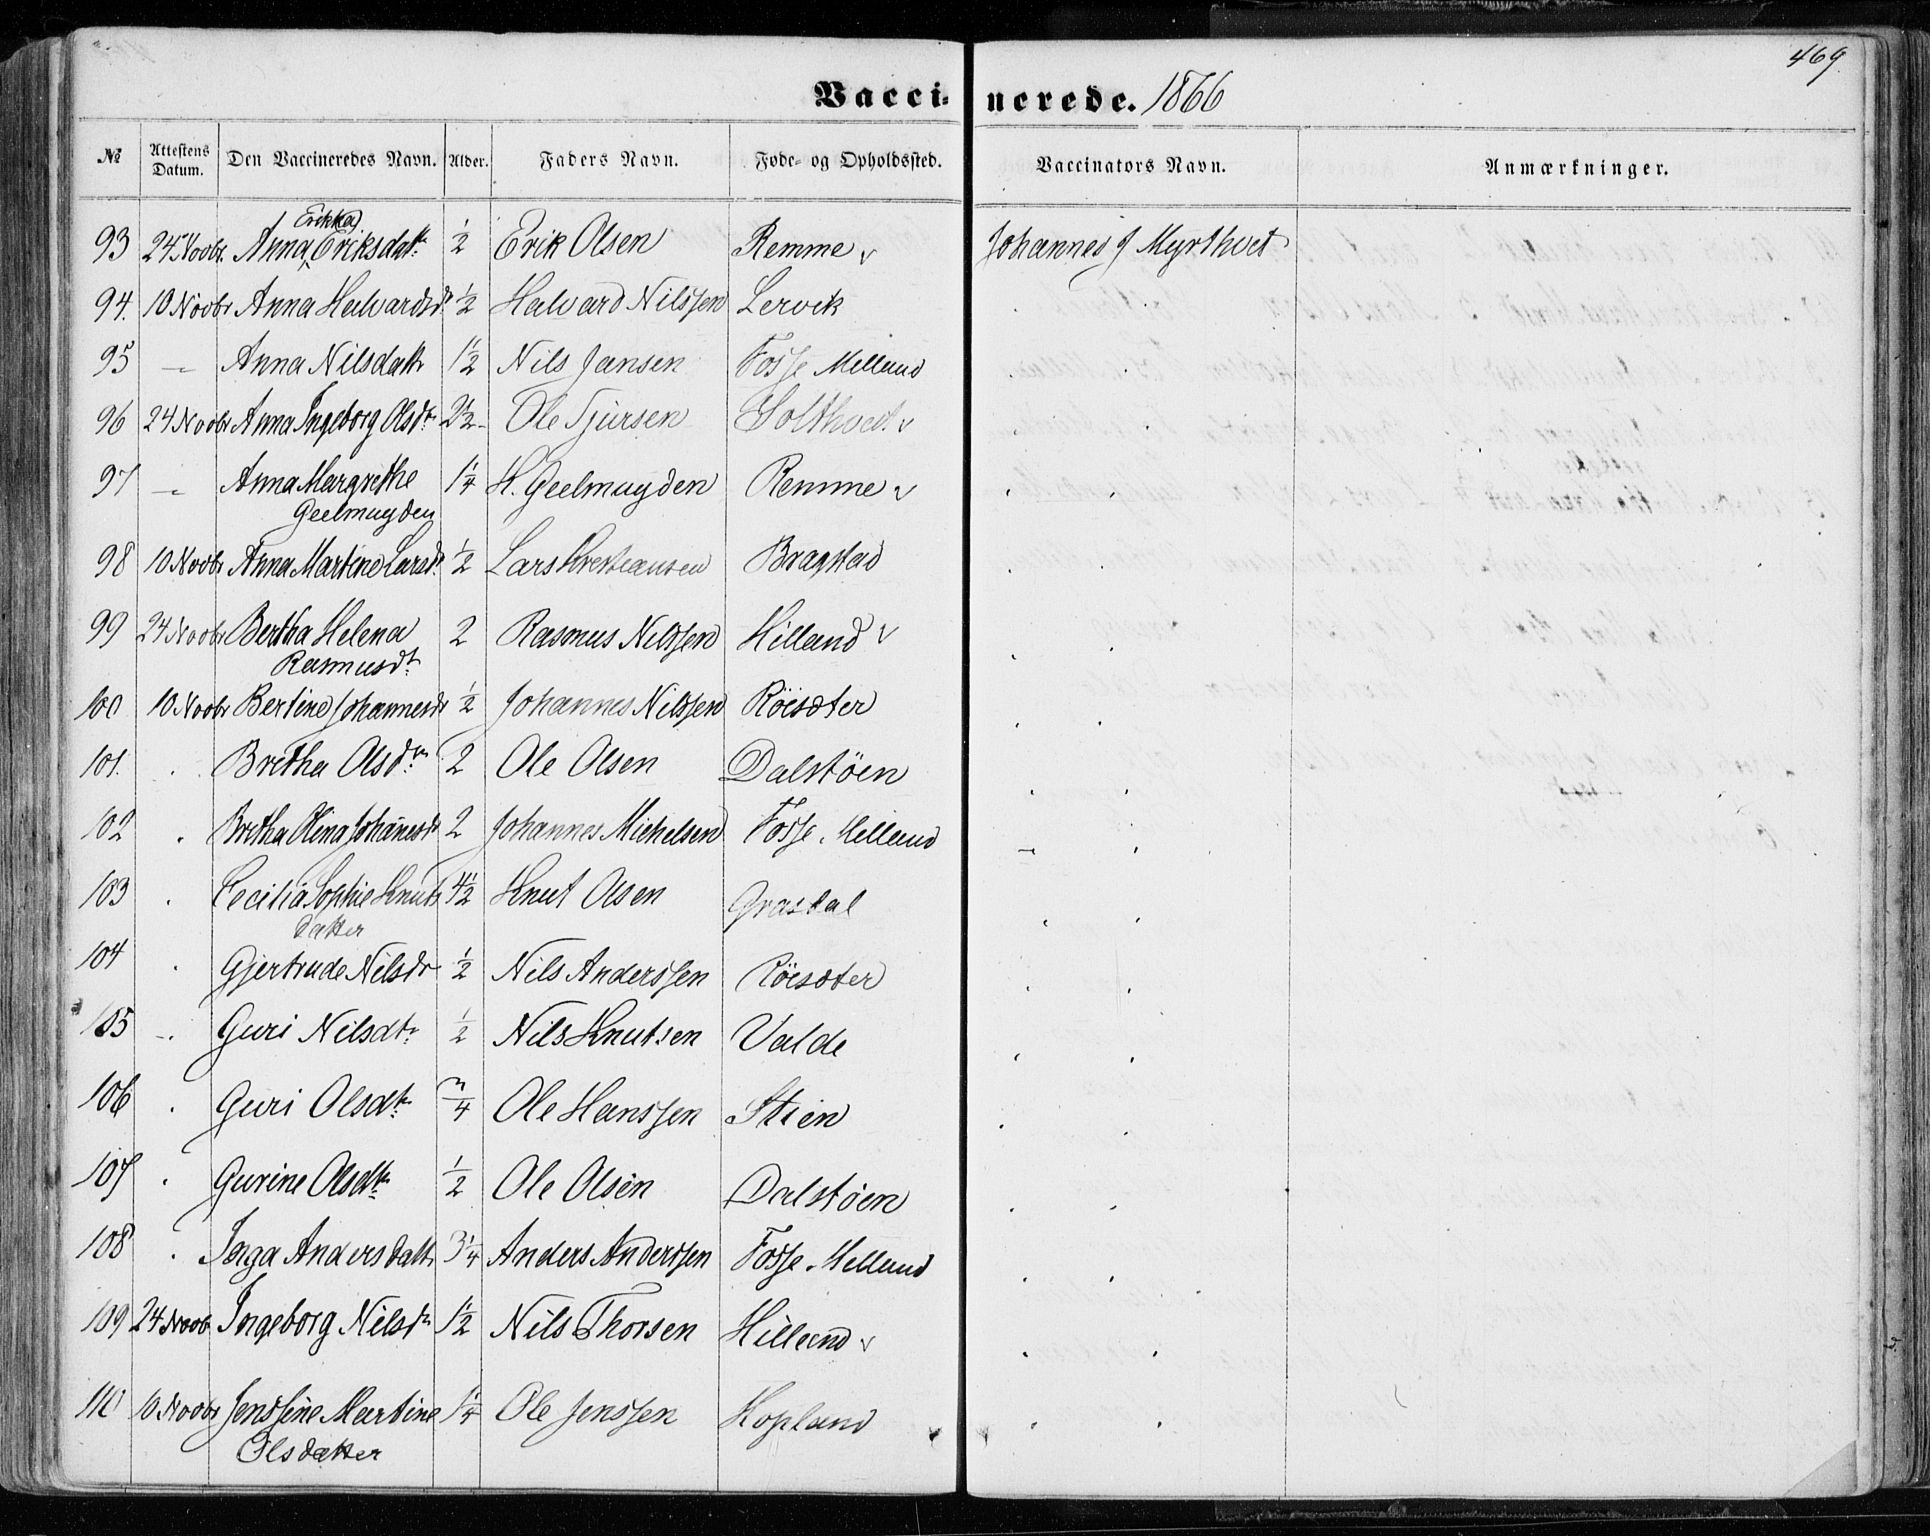 469.
Vaccinerede. 1866
№ Attestens Datum. Den Vaccineredes Navn. Alder. Faders Navn. Føde- og Opholdssted. Vaccinators Navn. Anmærkninger.
Erikka
93 24 Novbr. Anna Eriksdatr. ½ Erik Olsen Remme v Johannes J Myrthvet
94. 10 Novbr Anna Halvardsdr ½ Halvard Nilssen Lervik
95 — Anna Nilsdatr 1½ Nils Jansen Fosse Melland
96 24 Novbr Anna Ingeborg Olsdr. 2½ Ole Tjursen Solthvedt v
97 — Anna Margrethe 1¼ H. Geelmuyden Remme v
Geelmuyden
98 10 Novbr Anna Martine Larsdr ½ Lars Kristiansen Bragstad
99 24 Novbr Bertha Helena 2 Rasmus Nilssen Hilland v
Rasmusdr.
100 10 Novbr Bertine Johannesdr ½ Johannes Nilssen Röisæter
101. Bretha Olsdtr. 2 Ole Olsen Dalstöen
102 Bretha Olina Johanesdr 2 Johannes Michelsen Fosse Melland
103 Cecilia Sophie Knuts 4½ Knut Olsen Grasdal
datter
104 Gjertrude Nilsdr ½ Nils Anderssen Röisæter
105 Guri Nilsdtr ½ Nils Knutsen Valde
106 Guri Olsdtr. ¾ Ole Hanssen Stien
107 Gurine Olsdtr. ½ Ole Olsen Dalstöen
108 Inga Andersdatr 3¼ Anders Anderssen Fosse Melland
109 24 Novb Ingeborg Nilsdr 1½ Nils Thorsen Hilland v
110 10 Novbr Jenssine Martine 1¼ Ole Jenssen Hopland
Olsdatter